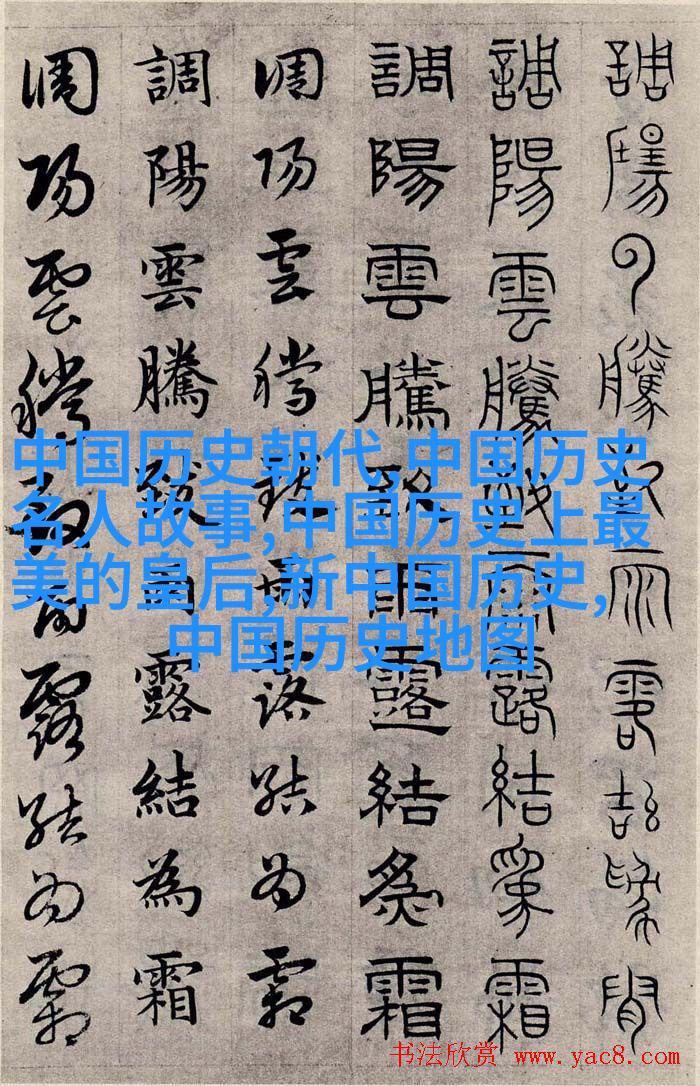 調陽云騰致雨露結為霜
調陽雲騰致雨露結為霜
調陽雲騰致雨露結為霜
調陽雲騰致雨露結為霜
調陽雲騰致雨露結為霜
調陽雲騰致雨露結為霜
中国历史朝代,中国历史
名人故事,中国历史上最
美的皇后,新中国历史,
中国历史地图
书法欣赏 www.yac8.com